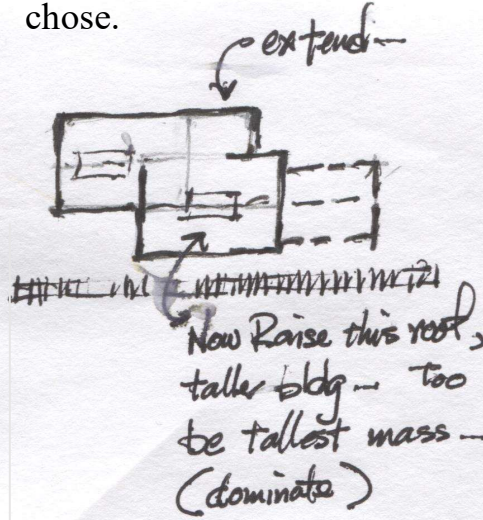 chose.
extend --
Now Raise this roof,
taller bldg -- Too
be tallest mass --
(dominate)